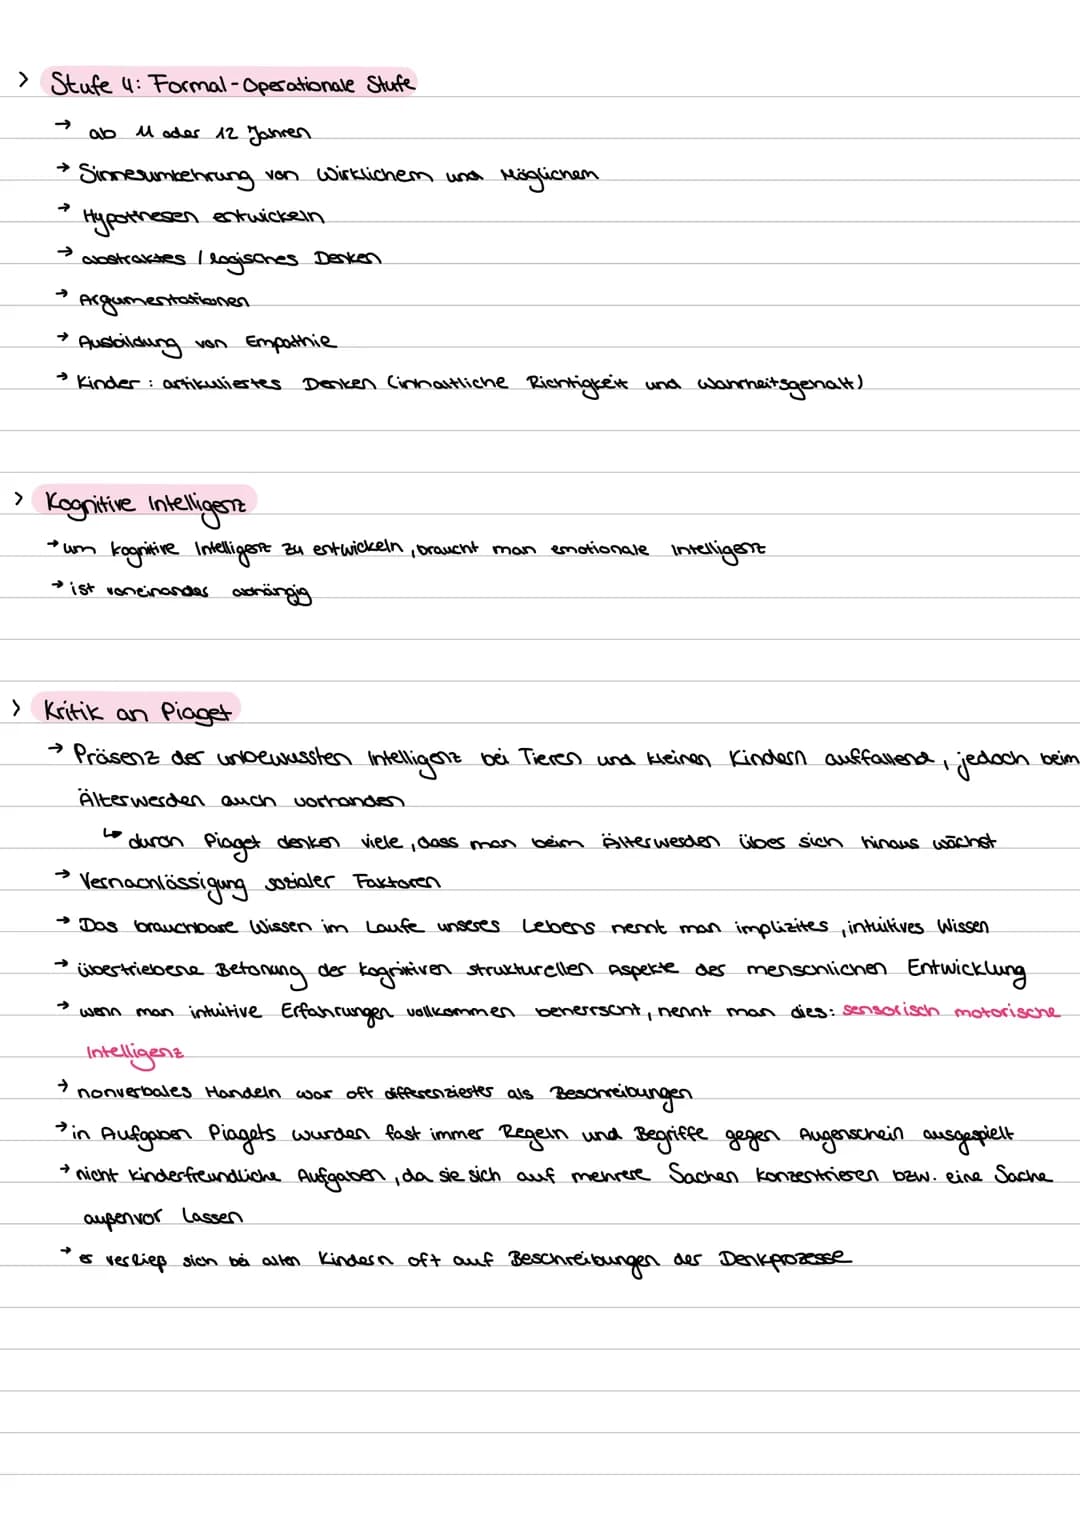 > Stufe 4: Formal-Operationale Stufe
→ ab 11 oder 12 Jahren
→ Sinnesumkehrung von Wirklichem und Möglichem
→ Hypothesen entwickeln
→ abstraktes / logisches Denken
→ Argumentationen
→ Ausbildung von Empathie
→ Kinder: artikuliertes Denken (inhaltliche Richtigkeit und Wahrheitsgehalt)
> Kognitive Intelligenz
→ um kognitive Intelligenz zu entwickeln, braucht man emotionale Intelligenz
→ ist voneinander abhängig
> Kritik an Piaget
→ Präsenz der unbewussten Intelligenz bei Tieren und kleinen Kindern auffallend, jedoch beim
Älterwerden auch vorhanden
↳ durch Piaget denken viele, dass man beim Älterwerden über sich hinaus wächst
→ Vernachlässigung sozialer Faktoren
→ Das brauchbare Wissen im Laufe unseres Lebens nennt man implizites, intuitives Wissen
→ übertriebene Betonung der kognitiven strukturellen Aspekte der menschlichen Entwicklung
→ wenn man intuitive Erfahrungen vollkommen beherrscht, nennt man dies: sensorisch motorische
Intelligenz
→ nonverbales Handeln war oft differenzierter als Beschreibungen
→ in Aufgaben Piagets wurden fast immer Regeln und Begriffe gegen Augenschein ausgespielt
→ nicht kinderfreundliche Aufgaben, da sie sich auf mehrere Sachen konzentrieren bzw. eine Sache
außenvor lassen
→ er verließ sich bei allen Kindern oft auf Beschreibungen der Denkprozesse